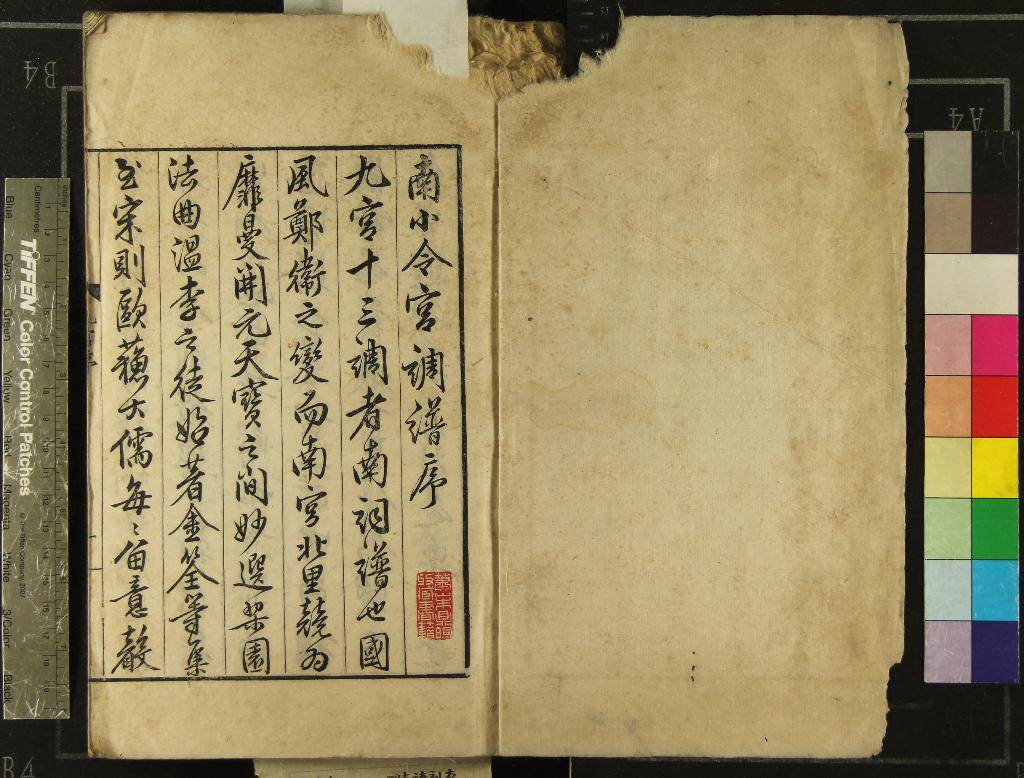 南小令宮調譜序
九宮十三調者南詞譜也國
風鄭衛之變而南宮北里競為
靡曼開元天寶之間妙選梨園
法曲溫李之徒始著金筌等集
至宋則歐蘇大儒每〻留意聲
TIFFEN Color Control Patches
© The Tiffen Company, 2007
Centimetres
Inches
Blue
Cyan
Green
Yellow
Red
Magenta
White
3/Color
Black
B4
A4
B4